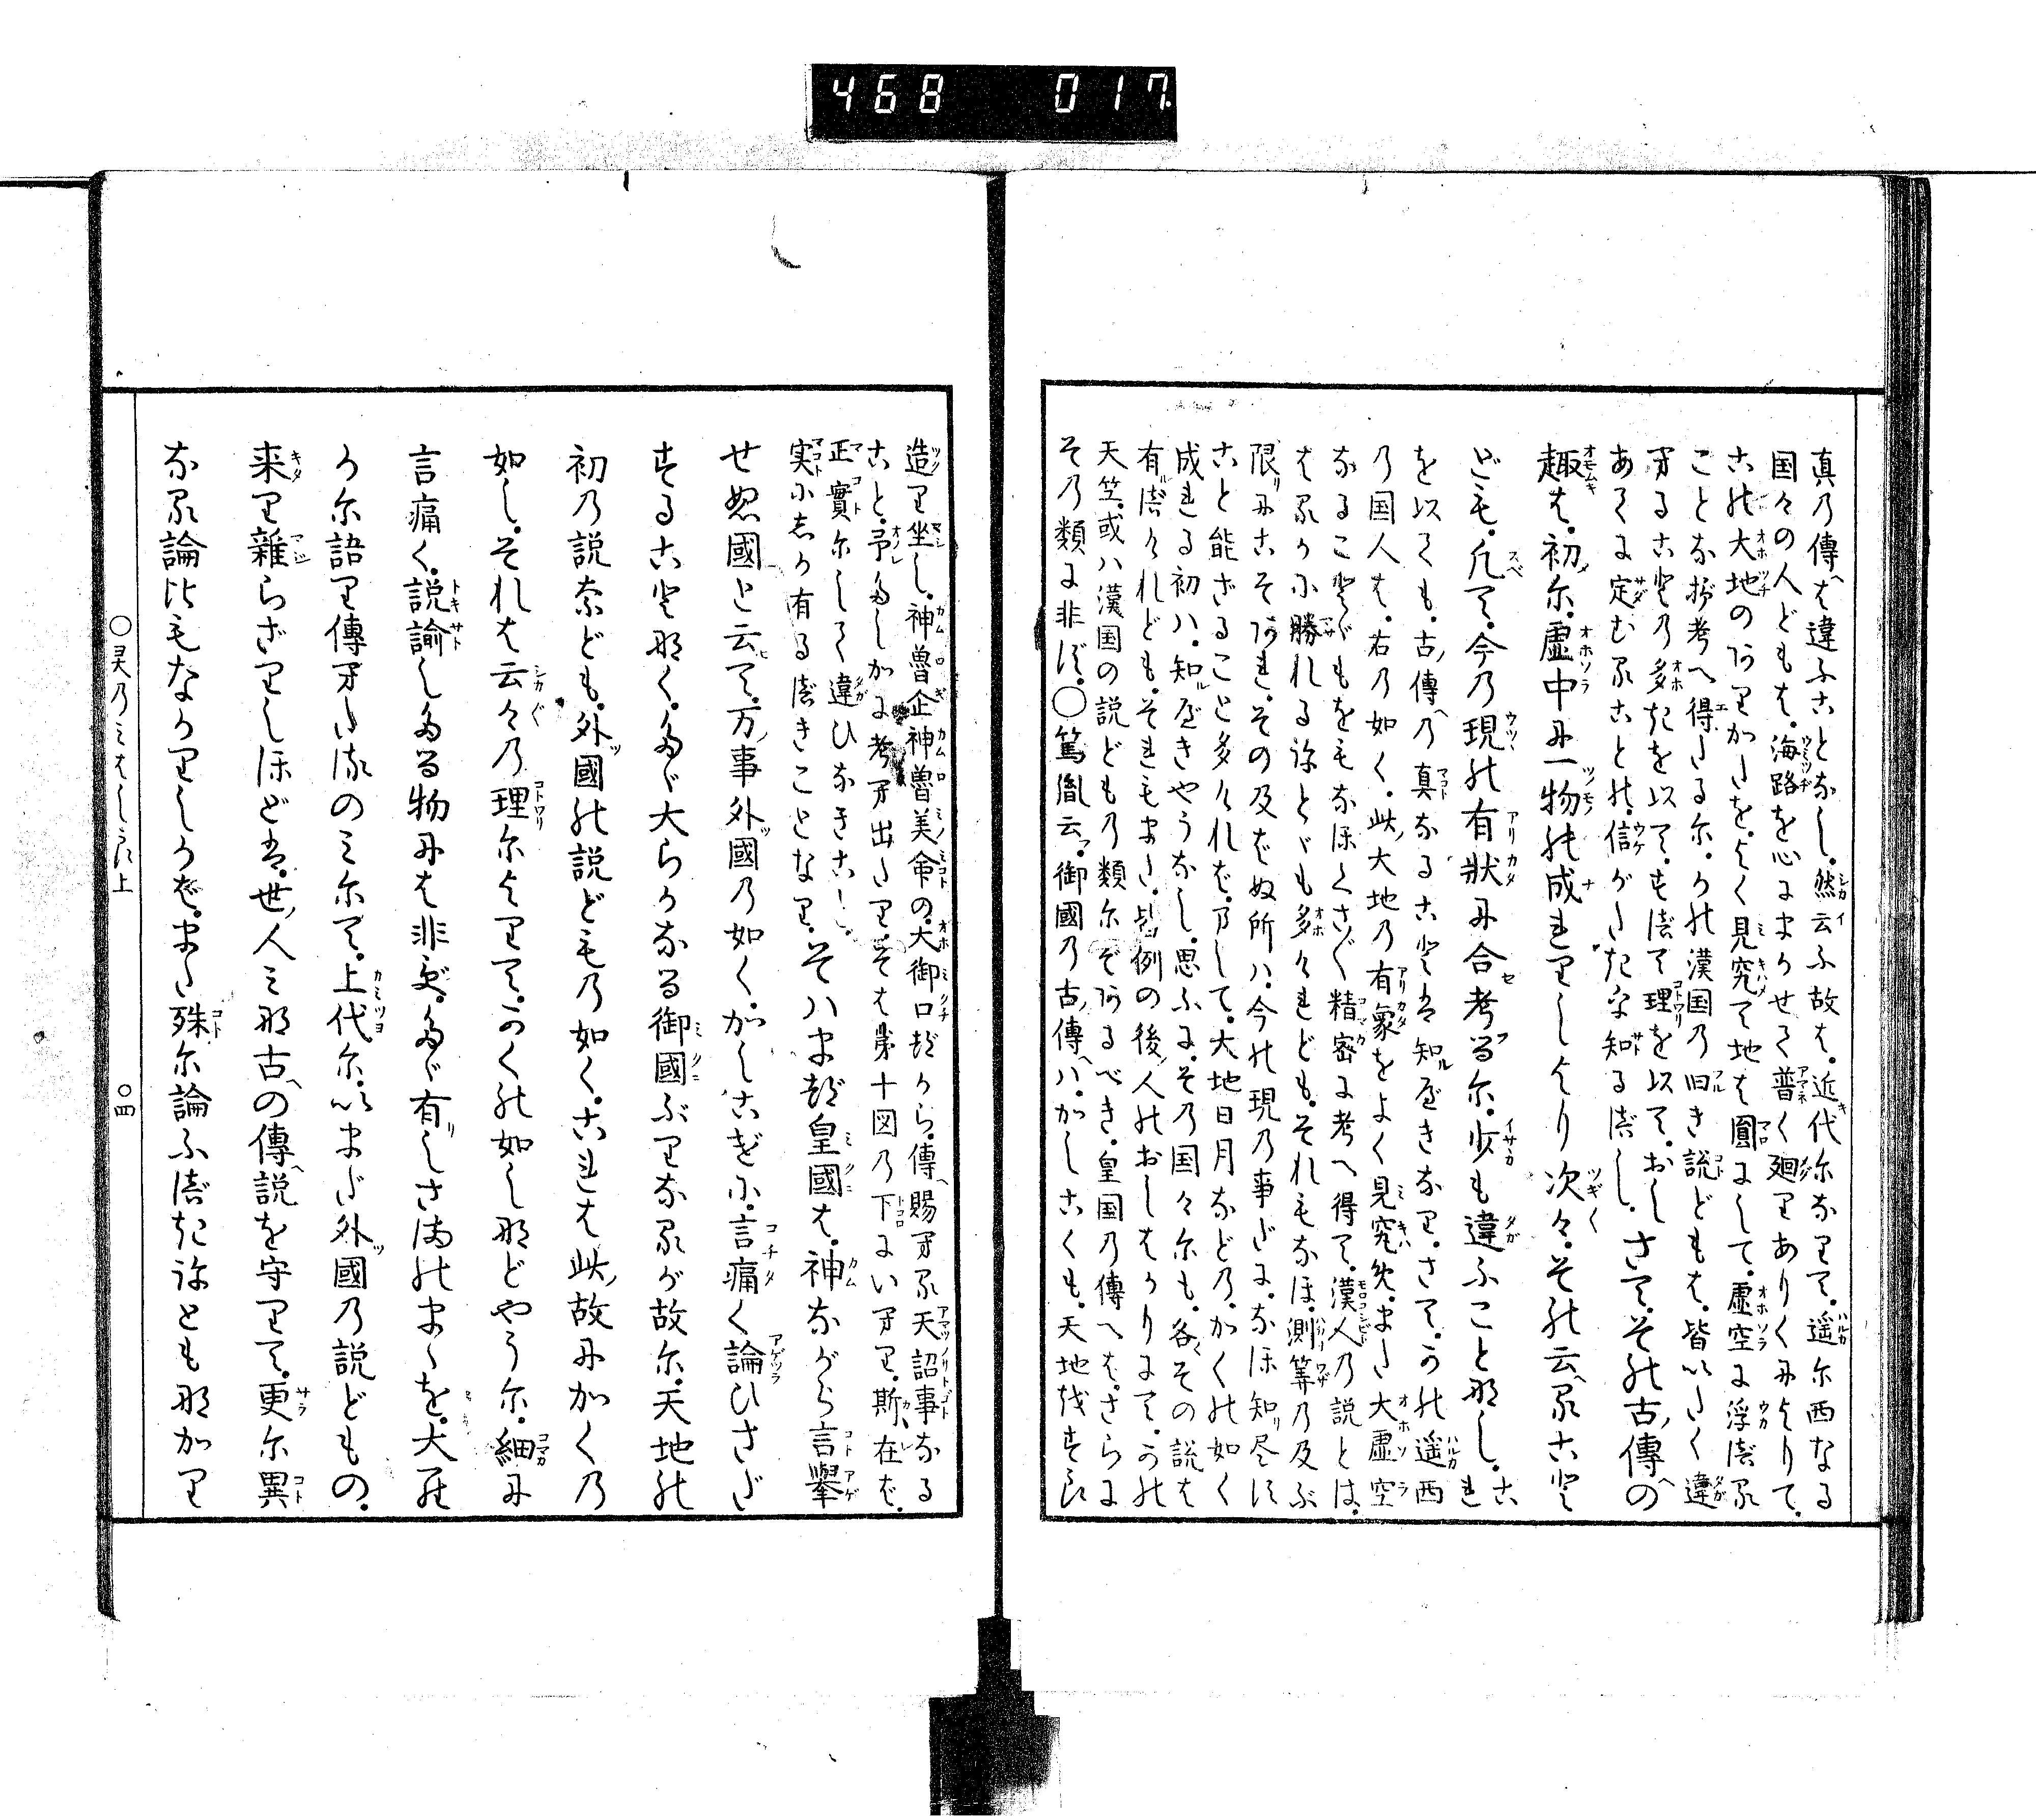 468 017
真乃傳へは違ふことなし。然云ふ故は。近代尓なりて。遥尓西なる
国々の人どもは。海路を心にまかせて普く廻りありくによりて。
この大地のありかたを。よく見究て地は圓にして。虚空に浮べる
ことを考へ得たる尓。かの漢国乃旧き説どもは。皆いたく違
へることの多きを以て。すべて理を以て。おし
あてに定むることの。信がたきを知るべし。さて。その古傳への
趣は。初尓。虚中に一物の成れりしより次々。その云ることゞ
ども。凡て。今乃現の有狀に合せ考ふる尓。少も違ふこと那し。これ
を以ても。古傳へ乃真なることは知るべきなり。さて。かの遥西
乃国人は。右乃如く。此大地乃有象をよく見究め。また大虚空
なることゞもをもなほくさ〴〵精密に考へ得て。漢人乃説とは。
はるかに勝れることゞも多けれども。それもなほ。測算乃及ぶ
限にこそあれ。その及ばぬ所ハ。今の現乃事だに。なほ知り尽す
こと能ざること多ければ。まして。大地日月などの。かくの如く
成れる初ハ。知るべきやうなし。思ふに。その国々尓も。各その説は
有べけれども。それもまた。皆例の後人のおしはかりにて。かの
天竺。或ハ漢国の説ども乃類尓ぞあるべき。皇国乃傳へは。さらに
その類に非ず。○篤胤云。御國乃古傳へハ。かしこくも。天地をすら
造り坐し。神魯企神魯美命の。大御口づから。傳へ賜へる天詔事なる
こと。予たしかに考へ出たり。そは第十図乃下にいへり。斯在ば。
正實尓して違ひなきこと。
実にしか有るべきことなり。そハまづ皇國は。神ながら言擧
せぬ國と云て。万事外國乃如く。かしこげに。言痛く論ひさだ
すること那く。たゞ大らかなる御國ぶりなるが故尓。天地の
初乃説奈ども。外國の説ども乃如く。これは此故にかく乃
如し。それは云々乃理尓よりて。かくの如し那どやう尓。細に
言痛く。説諭したる物には非ず。たゞ有しさ満のまゝを。大ら
か尓語り傳へたるのミ尓て。上代尓。いまだ外國乃説どもの。
来り雜らざりしほどは。世人ミ那古への傳説を守りて。更尓異
なる論ひもなかりしかば。また殊尓論ふべきことも那かり
○㚑乃ミはしら上 ○四